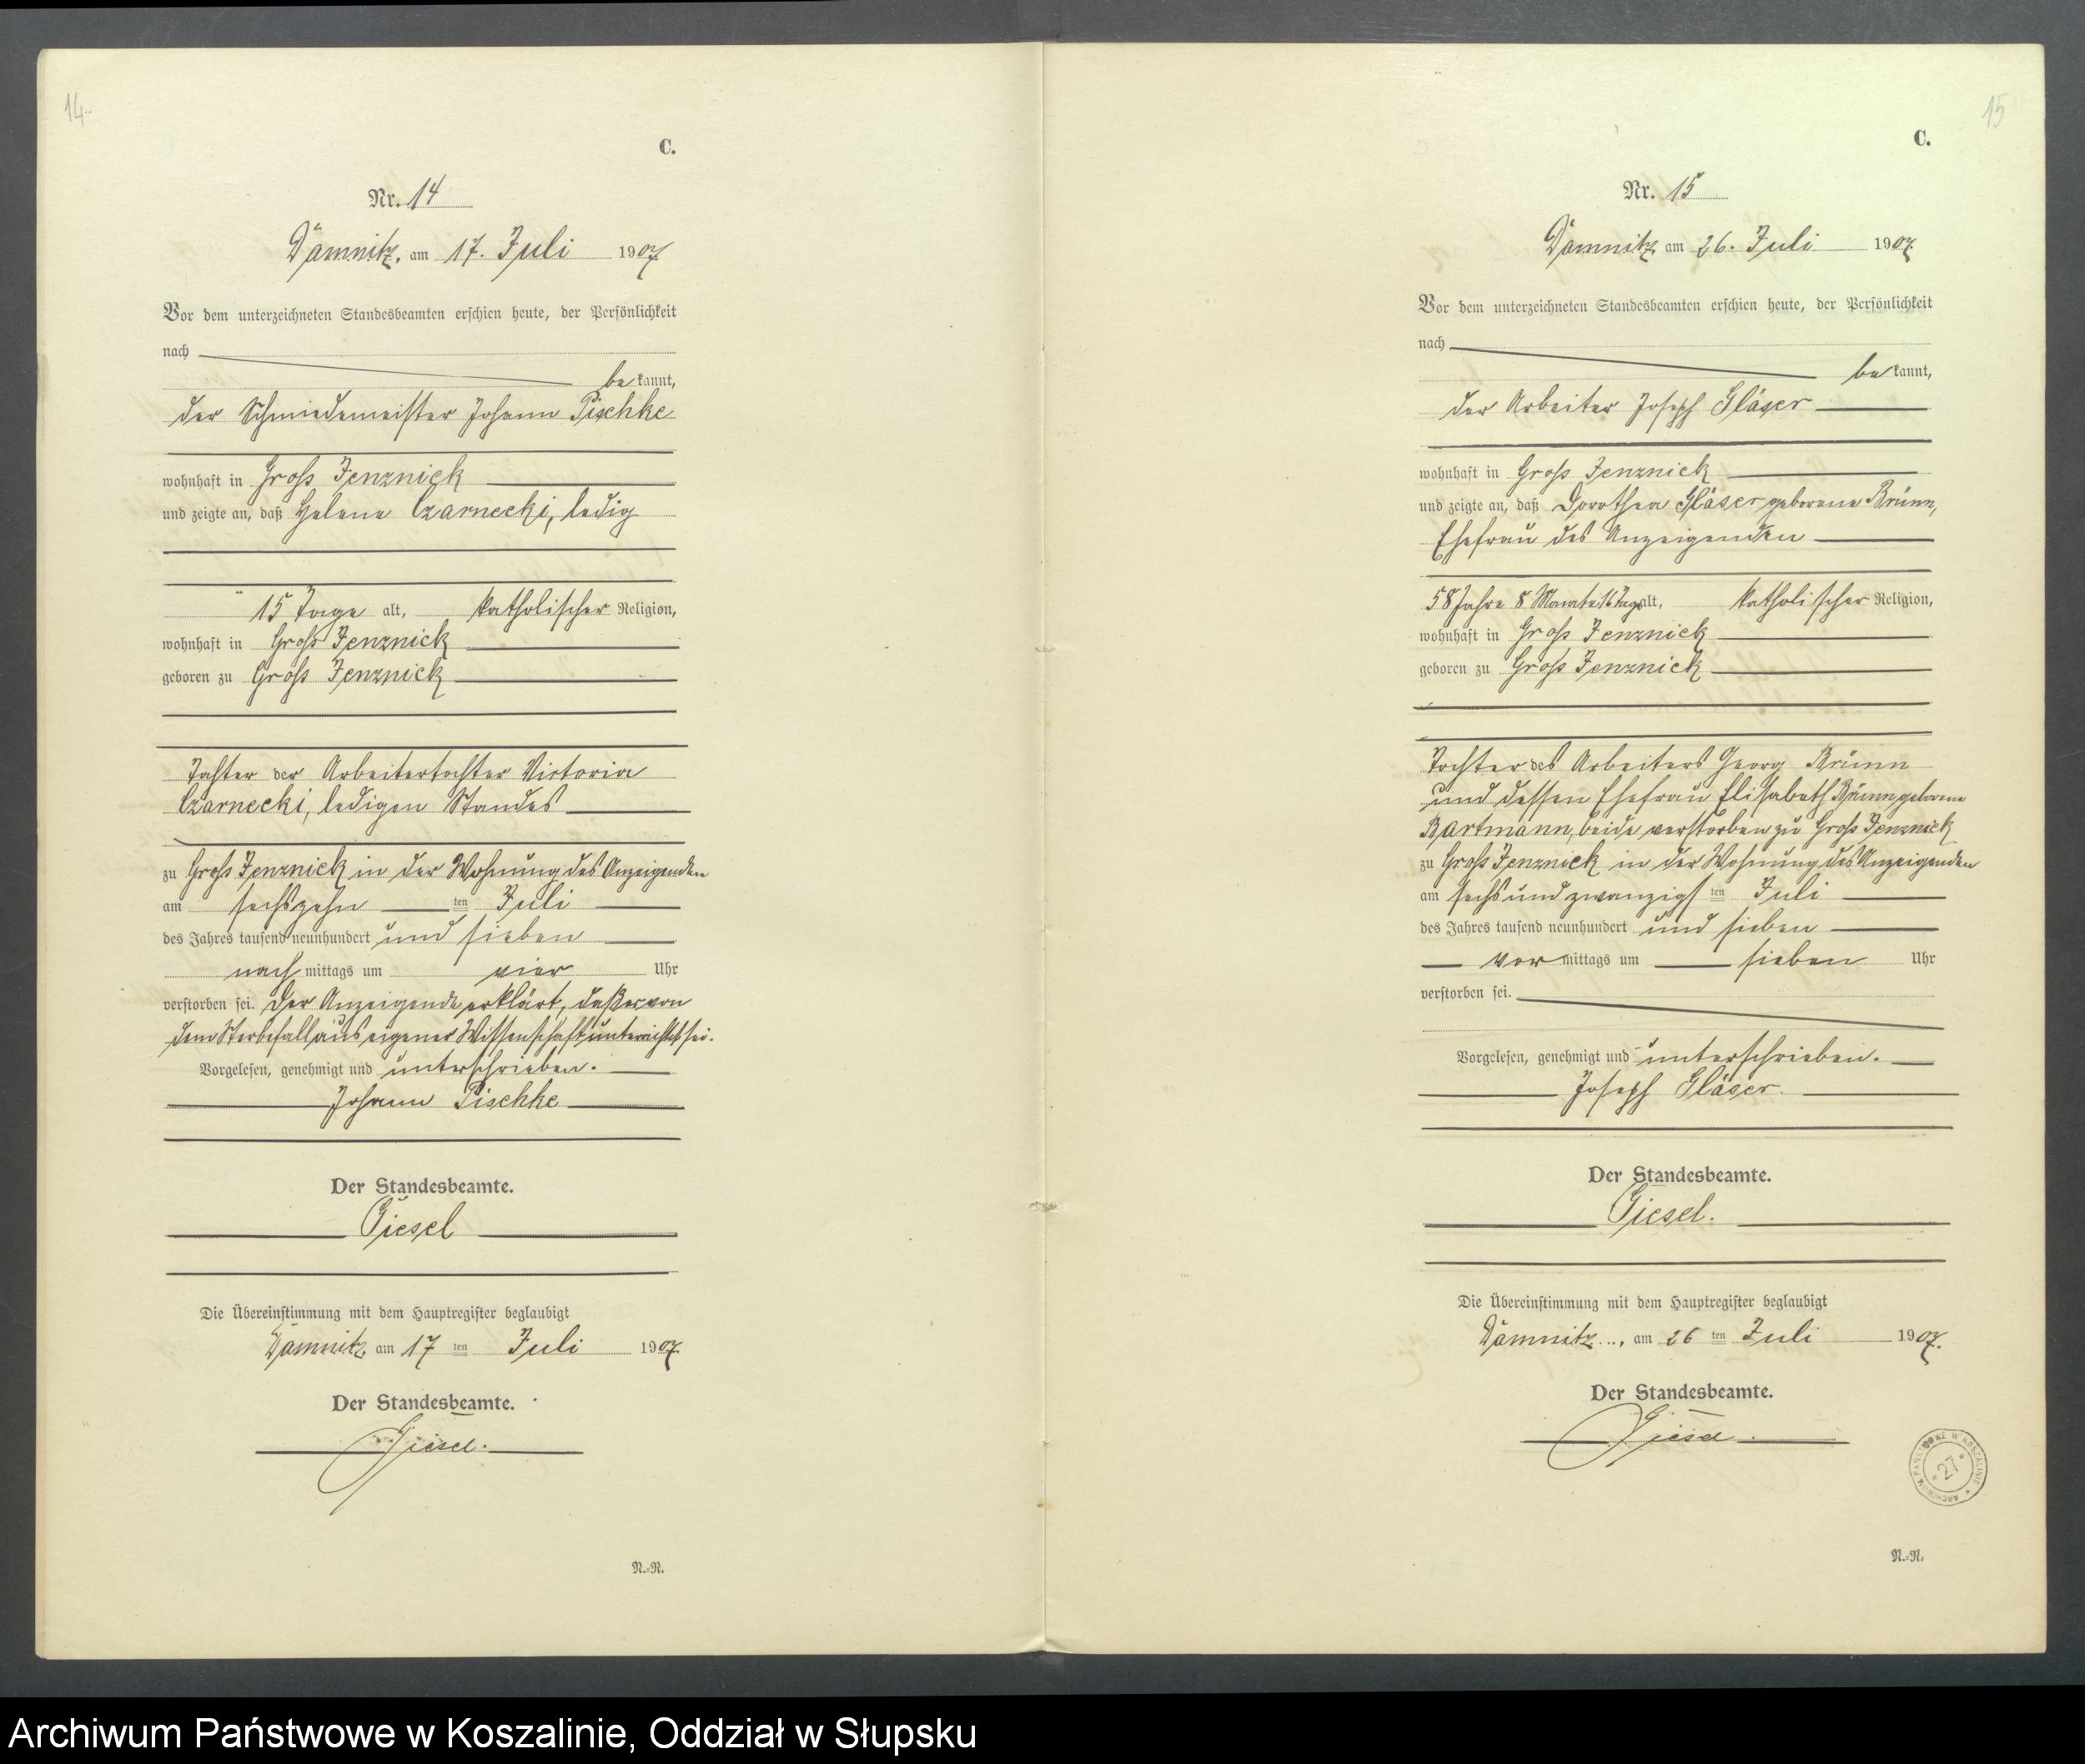 14.
C.
Nr. 14
Damnitz, am 17. Juli 1907
Vor dem unterzeichneten Standesbeamten erschien heute, der Persönlichkeit
nach
bekannt,
der Schmiedemeister Johann Pischke
wohnhaft in Groß Jenznick
und zeigte an, daß Helene Czarnecki, ledig
15 Tage alt, katholischer Religion,
wohnhaft in Groß Jenznick
geboren zu Groß Jenznick
Tochter der Arbeitertochter Victoria
Czarnecki, ledigen Standes
zu Groß Jenznick in der Wohnung des Anzeigenden
am sechszehn ten Juli
des Jahres tausend neunhundert und sieben
nachmittags um vier Uhr
verstorben sei. Der Anzeigende erklärt, daß er von
dem Sterbefall aus eigener Wissenschaft unterrichtet sei.
Vorgelesen, genehmigt und unterschrieben.
Johann Pischke
Der Standesbeamte.
Giesel
Die Übereinstimmung mit dem Hauptregister beglaubigt
Damnitz, am 17 ten Juli 1907.
Der Standesbeamte.
Giesel.
N.=N.
15
C.
Nr. 15
Damnitz, am 26. Juli 1907.
Vor dem unterzeichneten Standesbeamten erschien heute, der Persönlichkeit
nach
bekannt,
der Arbeiter Joseph Gläser
wohnhaft in Groß Jenznick
und zeigte an, daß Dorothea Gläser geborene Brünn,
Ehefrau des Anzeigenden
58 Jahre 8 Monate 16 Tage alt, katholischer Religion,
wohnhaft in Groß Jenznick
geboren zu Groß Jenznick
Tochter des Arbeiters Georg Brünn
und dessen Ehefrau Elisabeth Brünn geborene
Bartmann, beide verstorben zu Groß Jenznick
zu Groß Jenznick in der Wohnung des Anzeigenden
am sechs und zwanzigsten Juli
des Jahres tausend neunhundert und sieben
vormittags um sieben Uhr
verstorben sei.
Vorgelesen, genehmigt und unterschrieben.
Joseph Gläser.
Der Standesbeamte.
Giesel.
Die Übereinstimmung mit dem Hauptregister beglaubigt
Damnitz, am 26 ten Juli 1907.
Der Standesbeamte.
Giesel.
ARCHIWUM PAŃSTWOWE W KOSZALINIE
* 27 *
N.=N.
Archiwum Państwowe w Koszalinie, Oddział w Słupsku